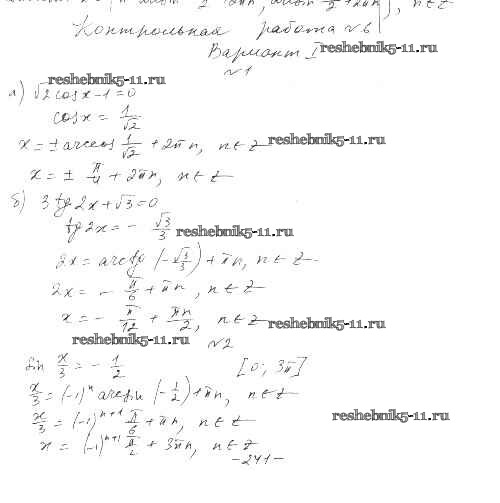 Контрольная работа №6
Вариант I
reshebnik5-11.ru
№1
а) √2 cos x - 1 = 0
cos x = 1/√2
x = ± arccos 1/√2 + 2πn, n∈Z
reshebnik5-11.ru
x = ± π/4 + 2πn, n∈Z
б) 3 tg 2x + √3 = 0
tg 2x = - √3/3
reshebnik5-11.ru
2x = arctg (-√3/3) + πn, n∈Z
2x = - π/6 + πn, n∈Z
x = - π/12 + πn/2, n∈Z
reshebnik5-11.ru
reshebnik5-11.ru
№2
sin x/3 = - 1/2 [0; 3π]
x/3 = (-1)ⁿ arcsin (-1/2) + πn, n∈Z
x/3 = (-1)ⁿ⁺¹ π/6 + πn, n∈Z
reshebnik5-11.ru
x = (-1)ⁿ⁺¹ π/2 + 3πn, n∈Z
-241-